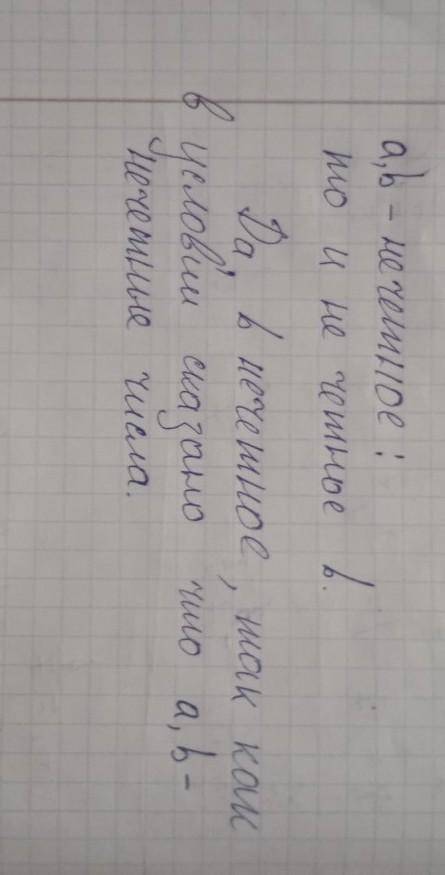 a,b - нечетное:
то и не четное b.
Да, b нечетное, так как
в условии сказано что a,b -
нечетные числа.